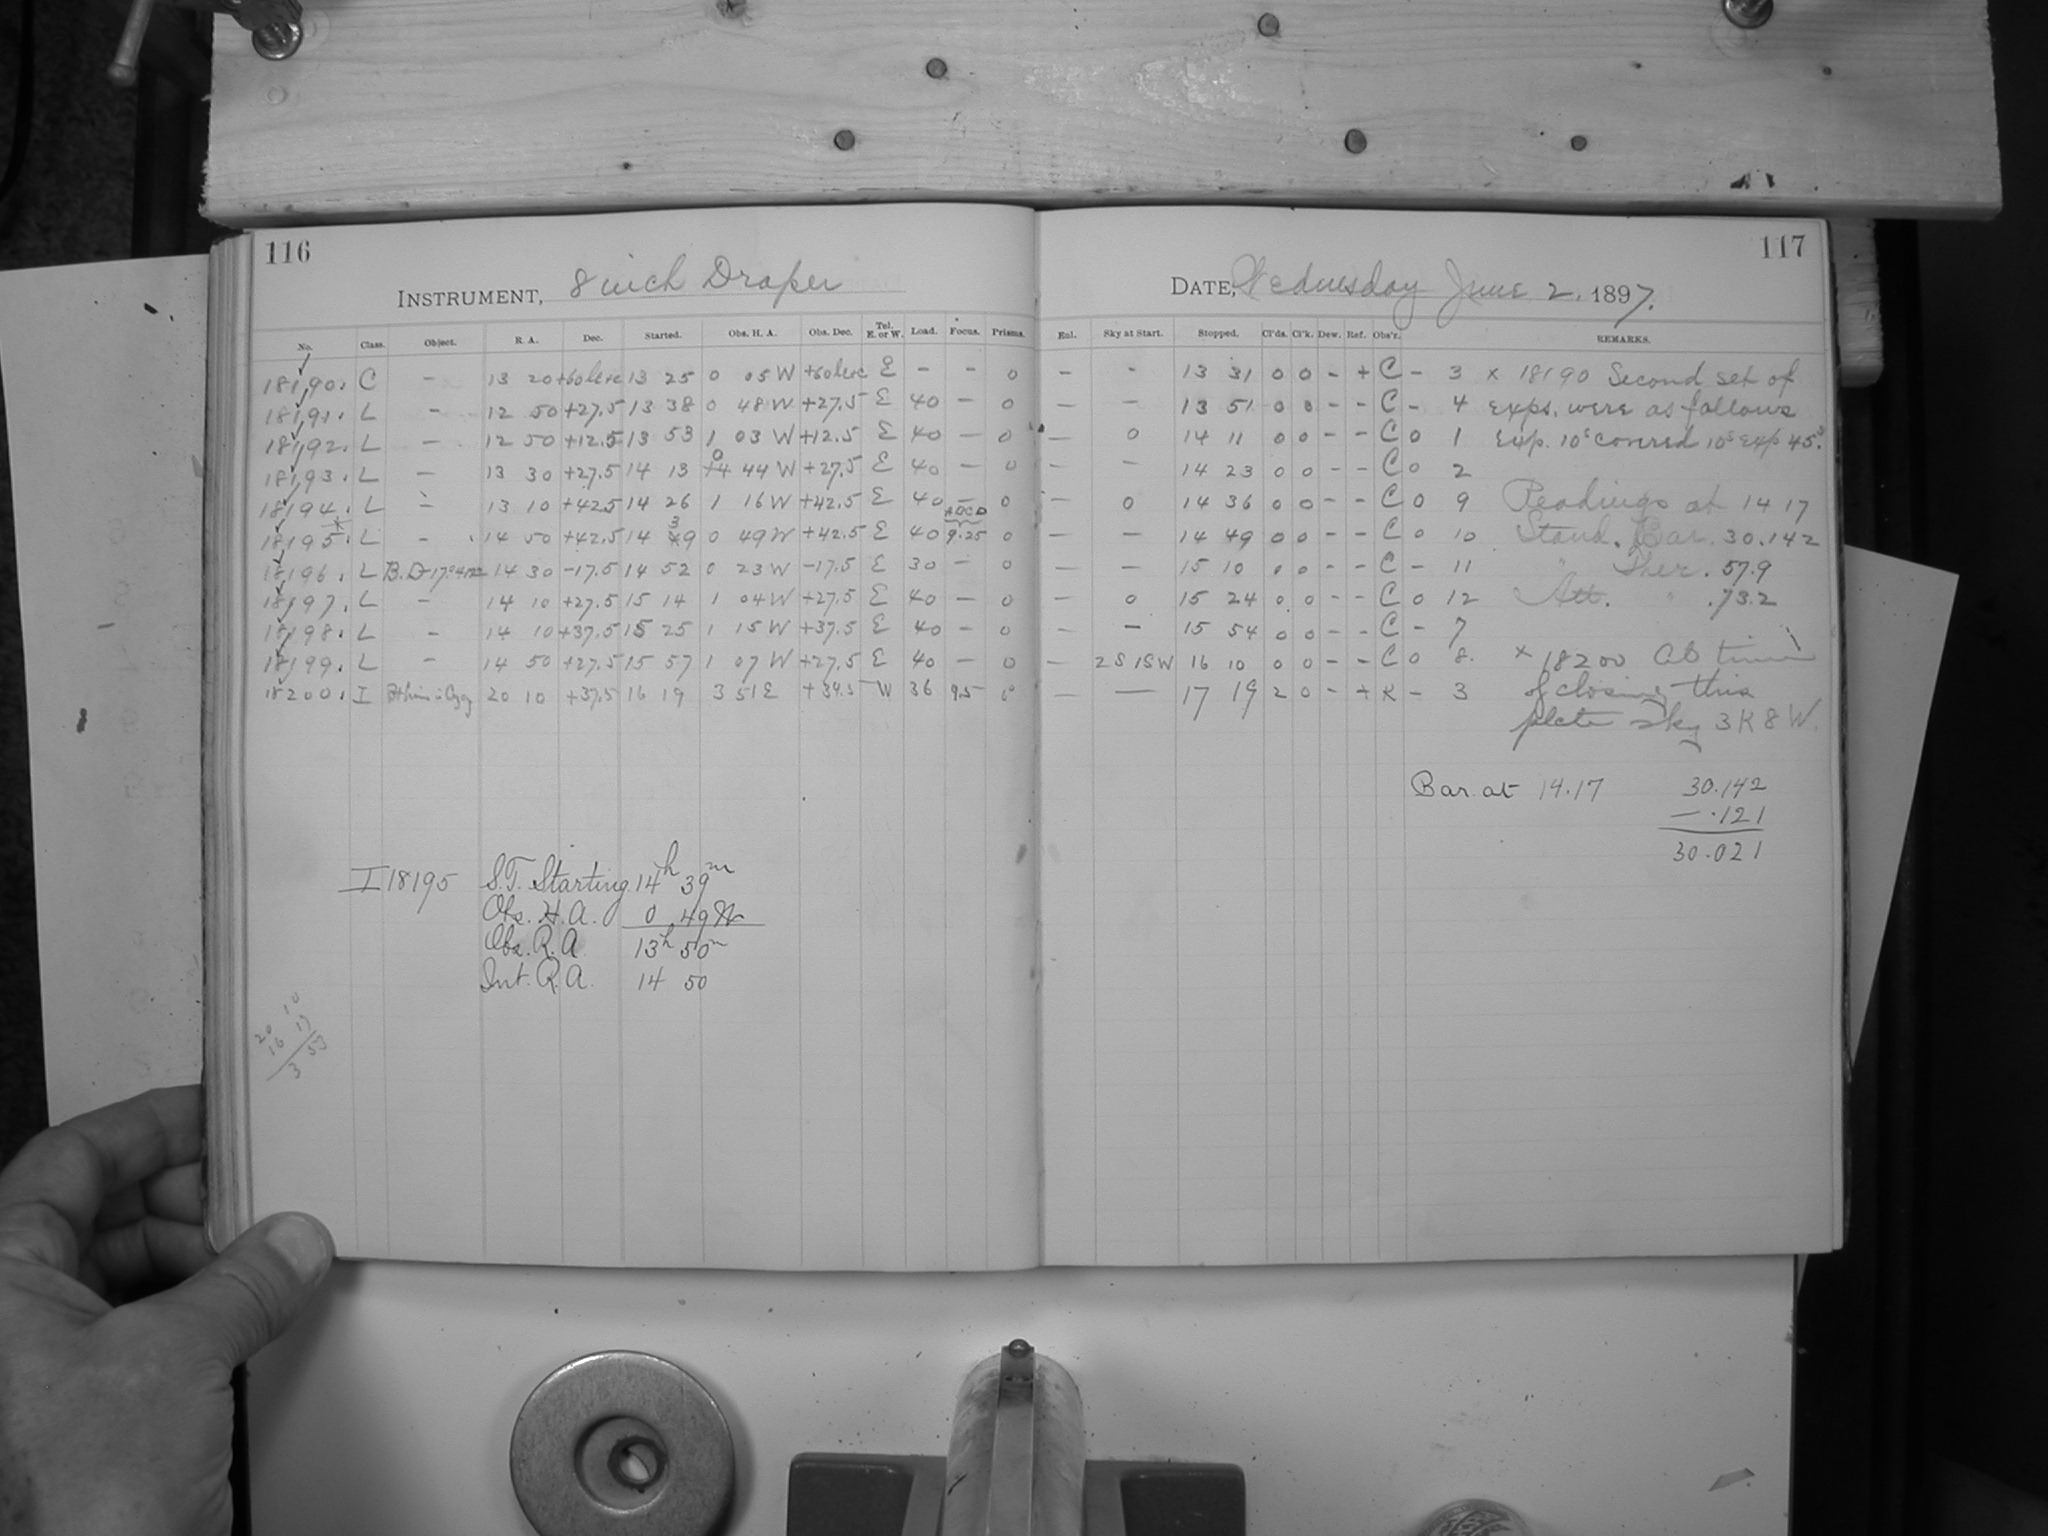 116
INSTRUMENT, 8 inch Draper
No. Class. Object. R. A. Dec. Started. Obs. H. A. Obs. Dec. Tel. E. or W. Load. Focus. Prisms.
18190. C - 13 20 +60 13 25 0 05 W +60 E - - 0
18191. L - 12 50 +27.5 13 38 0 48 W +27.5 E 40 - 0
18192. L - 12 50 +12.5 13 53 1 03 W +12.5 E 40 - 0
18193. L - 13 30 +27.5 14 13 0 44 W +27.5 E 40 - 0
18194. L - 13 10 +42.5 14 26 1 16 W +42.5 E 40 - 0
18195. L - 14 50 +42.5 14 39 0 49 W +42.5 E 40 9.25 0
18196. L B.D-17° 14 30 -17.5 14 52 0 23 W -17.5 E 30 - 0
18197. L - 14 10 +27.5 15 14 1 04 W +27.5 E 40 - 0
18198. L - 14 10 +37.5 15 25 1 15 W +37.5 E 40 - 0
18199. L - 14 50 +27.5 15 57 1 07 W +27.5 E 40 - 0
18200. I 20 10 +37.5 16 19 3 51 E W 36 9.5 0
I 18195 S.T. Starting 14h 39m
Obs. H.A. 0 49 W
Obs. R.A. 13h 50m
Int. R.A. 14 50
20 10
16 17
3 53
117
DATE, Wednesday June 2. 1897.
Enl. Sky at Start. Stopped. Cl'ds. Cl'k. Dew. Ref. Obs'r. REMARKS.
- - 13 31 0 0 - + C - 3 x 18190 Second set of
- - 13 51 0 0 - - C - 4 exps. were as follows
- 0 14 11 0 0 - - C 0 1 Exp. 10s covered 10s exp 45s
- - 14 23 0 0 - - C 0 2
- 0 14 36 0 0 - - C 0 9 Readings at 14 17
- - 14 49 0 0 - - C 0 10 Stand. Bar. 30.142
- - 15 10 0 0 - - C - 11 " Ther. 57.9
- 0 15 24 0 0 - - C 0 12 Att. " .73.2
- - 15 54 0 0 - - C - 7
- 2S 1SW 16 10 0 0 - - C 0 8. x 18200 At time
- - 17 19 2 0 - + K - 3 of closing this
plate sky 3K 8W.
Bar. at 14.17 30.142
- .121
30.021